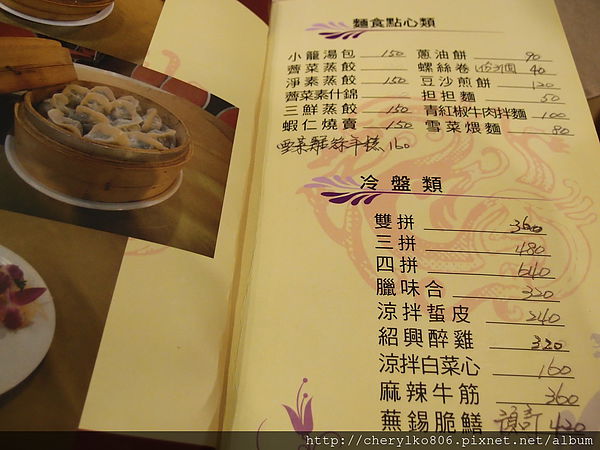 麵食點心類
小籠湯包 150
薺菜蒸餃
淨素蒸餃 150
薺菜素什錦
三鮮蒸餃 150
蝦仁燒賣 150
年糕 160
蔥油餅 90
螺絲卷 40
豆沙煎餅 120
担担麵 50
青紅椒牛肉拌麵 100
雪菜煨麵 80
冷盤類
雙拼 360
三拼 480
四拼 640
臘味合 320
涼拌蜇皮 240
紹興醉雞 320
涼拌白菜心 160
麻辣牛筋 360
蕪錫脆鱔 預訂 420
http://cherylko806.pixnet.net/album